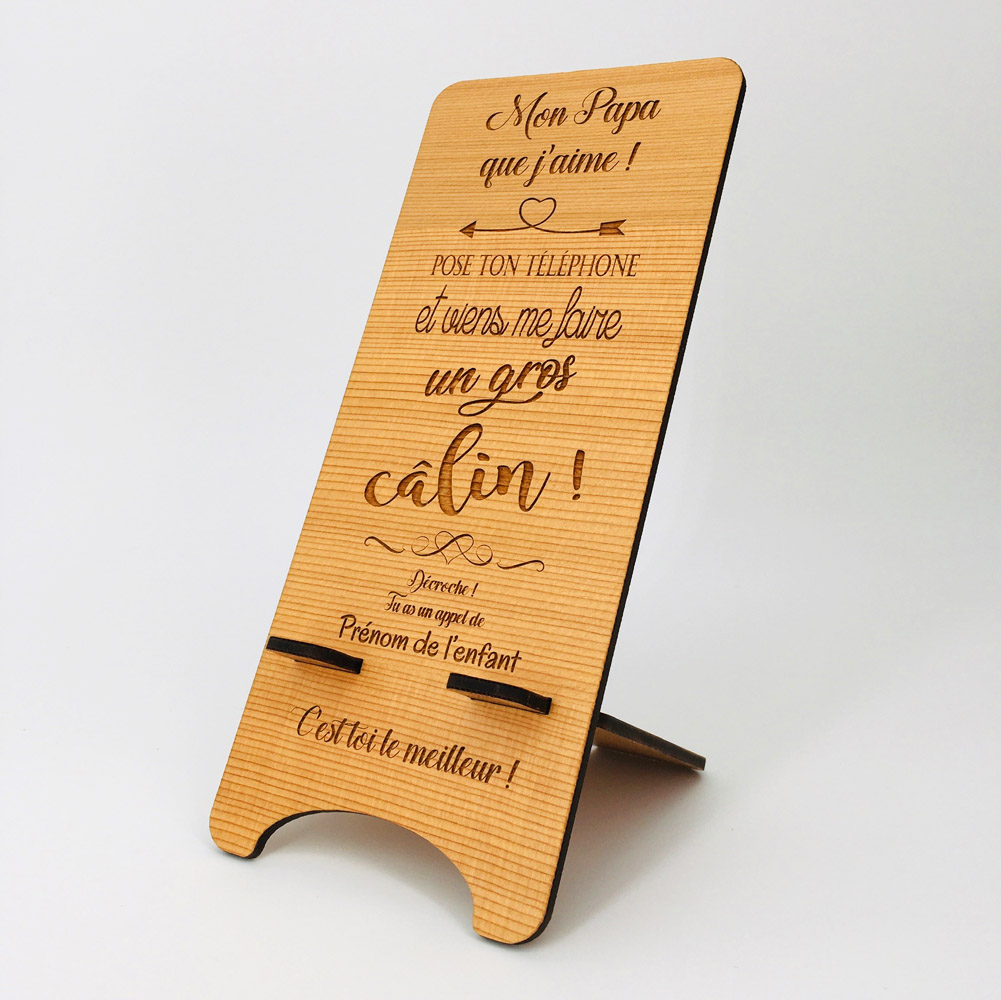 Mon Papa
que j'aime !
POSE TON TÉLÉPHONE
et viens me faire
un gros
câlin !
Décroche !
Tu as un appel de
Prénom de l'enfant
C'est toi le meilleur !